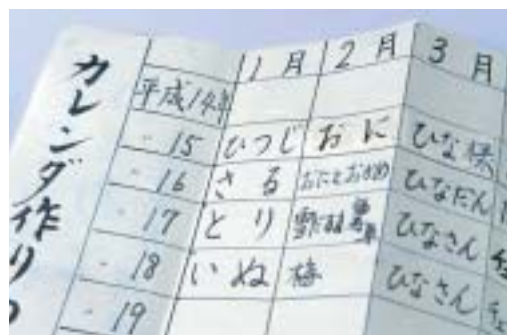 カレンダ作りの
1月 2月 3月
平成14年
〃 15 ひつじ おに ひな様
〃 16 さる おにとおかめ ひなだん
〃 17 とり ひなさん
〃 18 いぬ 梅 ひなさん
〃 19